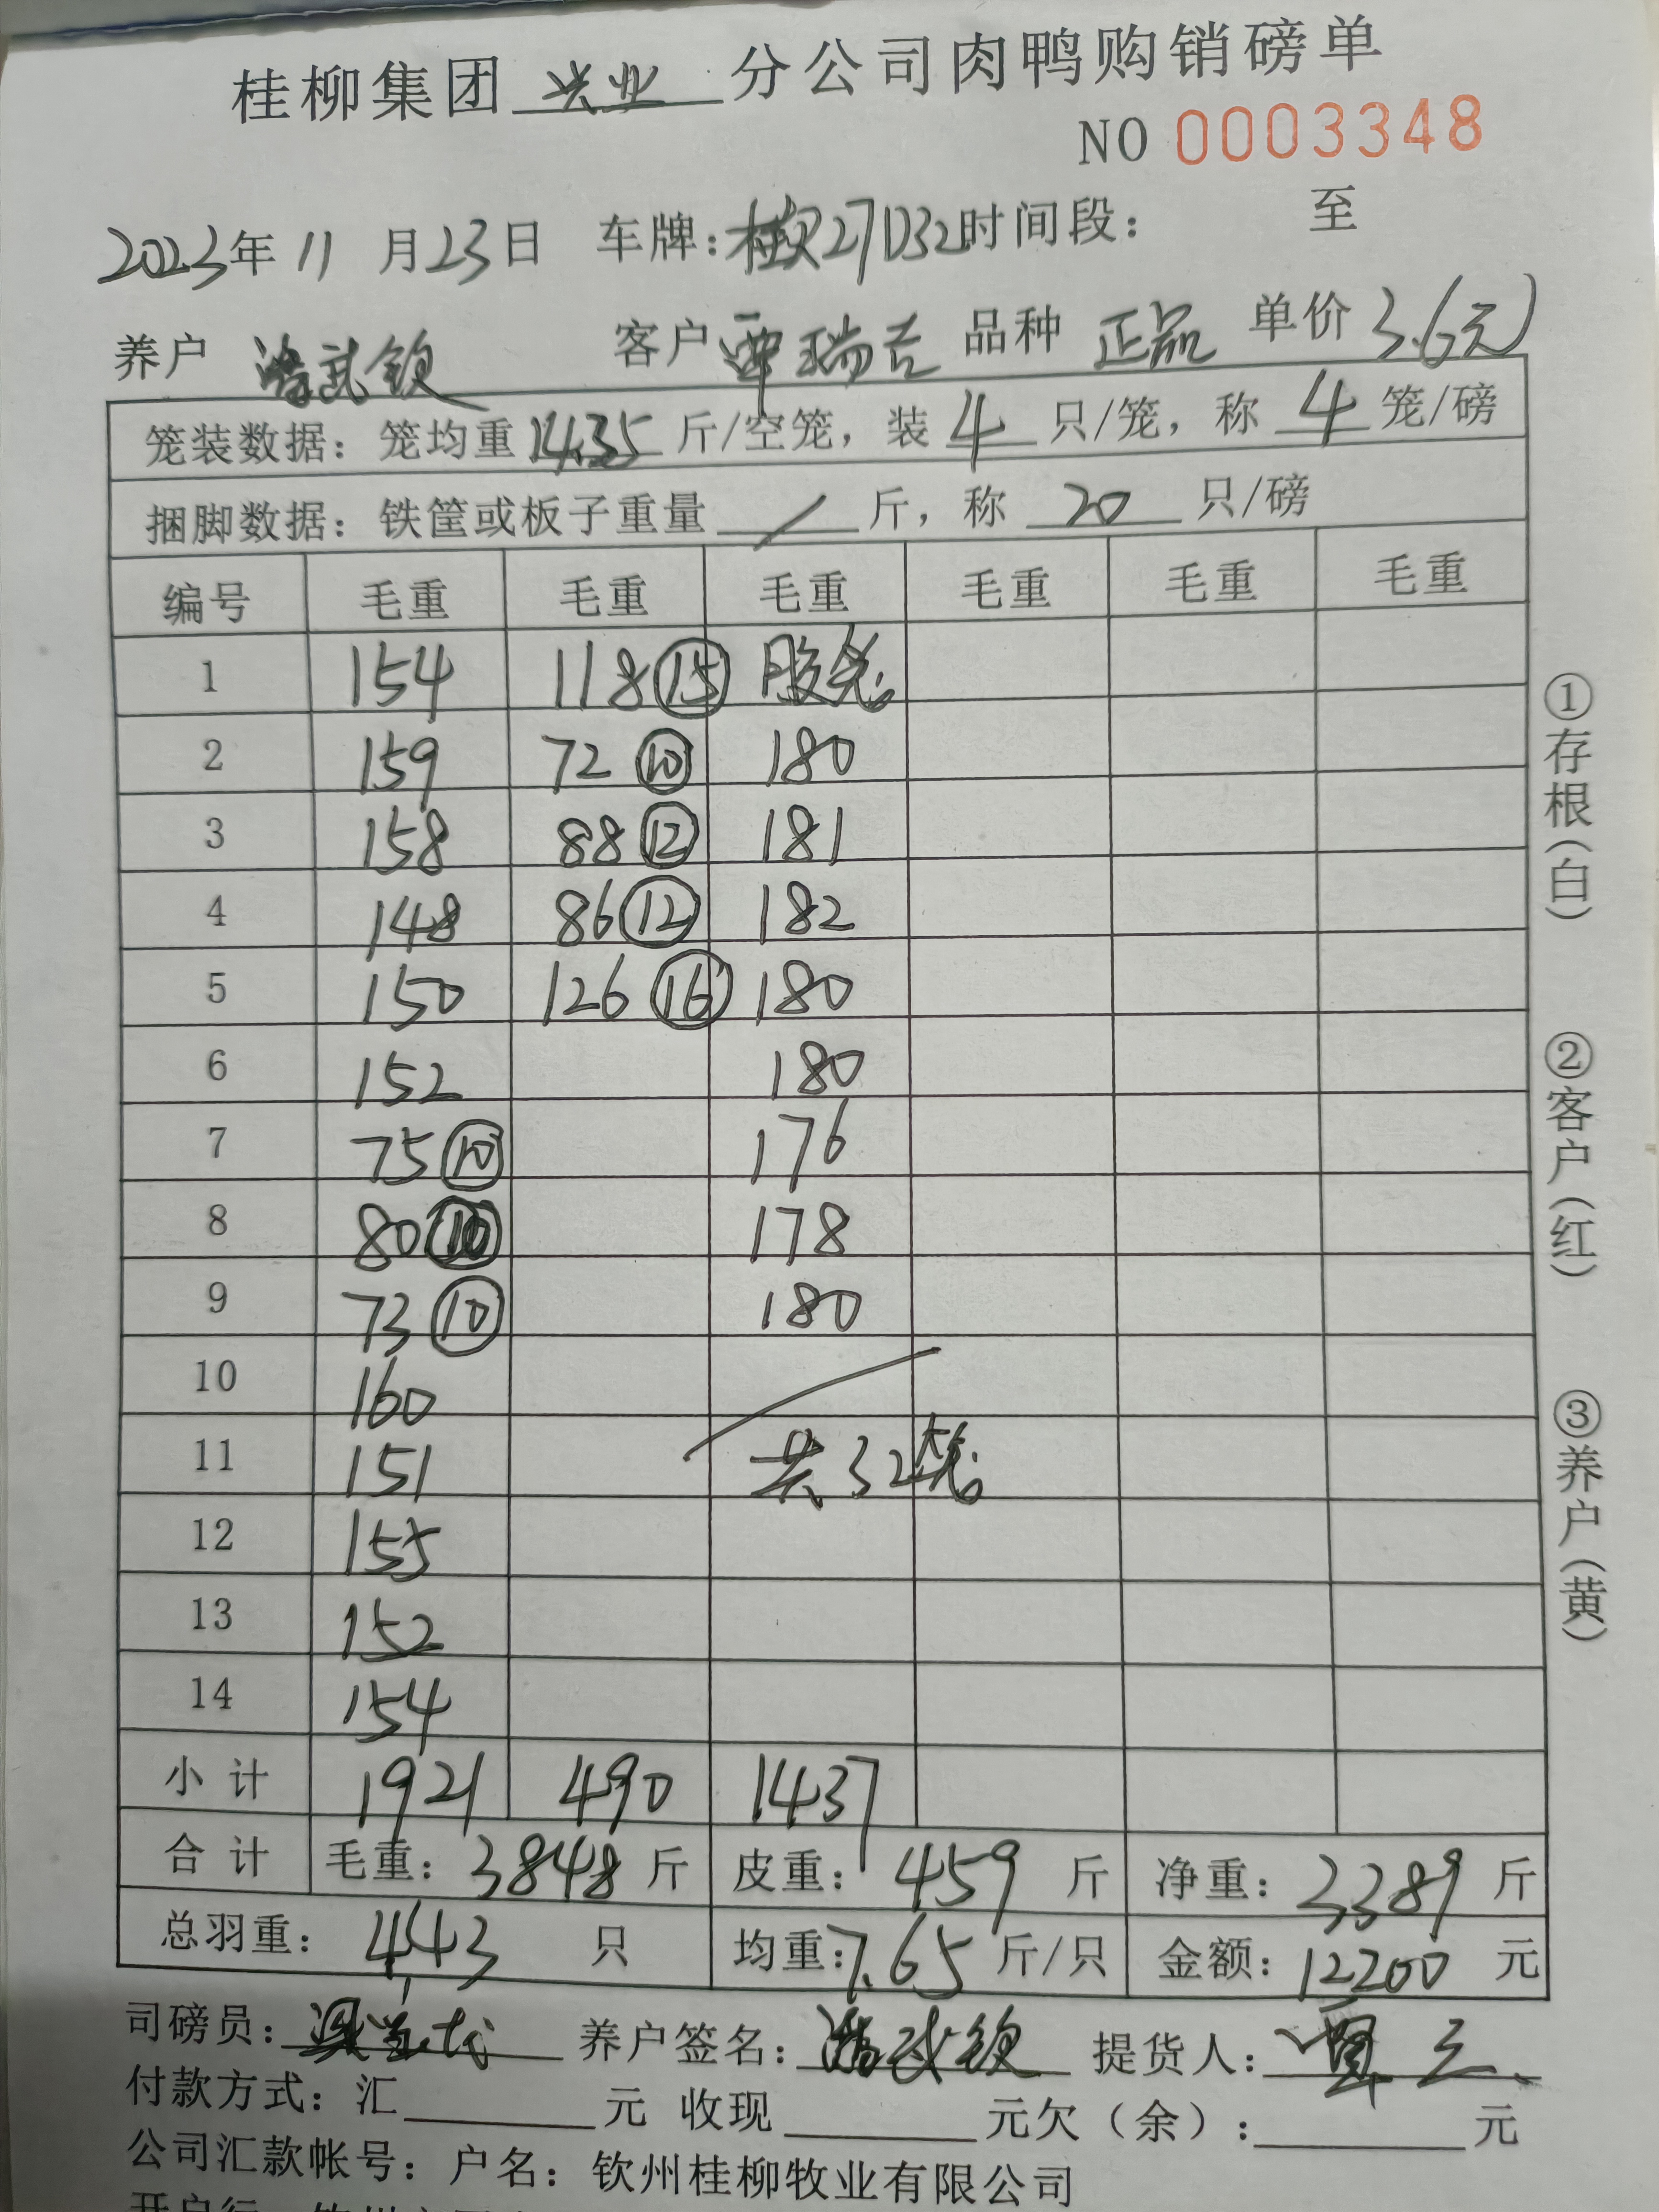 桂柳集团 兴业 分公司肉鸭购销磅单
NO 0003348
2023年 11 月 23 日 车牌: 27D32 时间段: 至
养户 武钦 客户 覃瑞吉 品种 正品 单价 3.6元
笼装数据: 笼均重 14.35 斤/空笼, 装 4 只/笼, 称 4 笼/磅
捆脚数据: 铁筐或板子重量 / 斤, 称 20 只/磅
编号 毛重 毛重 毛重 毛重 毛重 毛重
1 154 118 ⑮
2 159 72 ⑩ 180
3 158 88 ⑫ 181
4 148 86 ⑫ 182
5 150 126 ⑯ 180
6 152 180
7 75 ⑩ 176
8 80 ⑩ 178
9 73 ⑩ 180
10 160
11 151 共32笼
12 155
13 152
14 154
小计 1921 490 1437
合计 毛重: 3848 斤 皮重: 459 斤 净重: 3389 斤
总羽重: 443 只 均重: 7.65 斤/只 金额: 12200 元
司磅员: 养户签名: 武钦 提货人: 覃
付款方式: 汇 元 收现 元欠(余): 元
公司汇款帐号: 户名: 钦州桂柳牧业有限公司
①存根(白)
②客户(红)
③养户(黄)